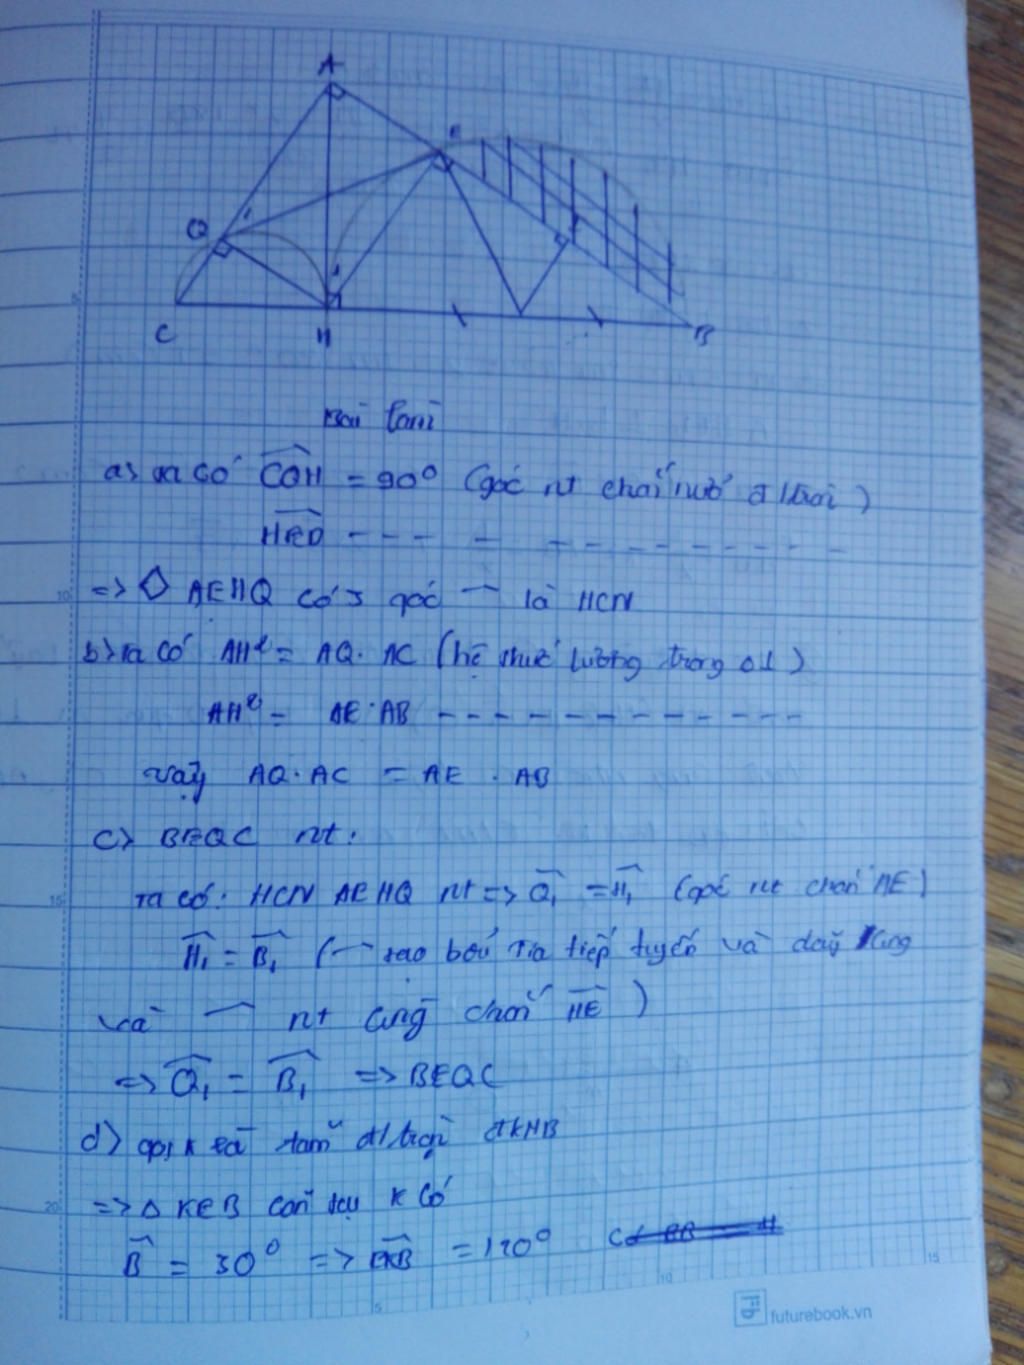 A
E
Q 1
1
C H B
Bài làm
a) Ta có COH = 90° (góc nt chắn nửa đ/tròn)
HED - - - - - - - - - - - -
=> ◇ AEHQ có 3 góc ⌒ là HCN
b) Ta có AH² = AQ. AC (hệ thức lượng trong Δ⊥)
AH² = AE.AB - - - - - - - - - - - -
vậy AQ.AC = AE . AB
c) BEQC nt.
Ta có: HCN AEHQ nt => Q₁ = H₁ (góc nt chắn AE)
H₁ = B₁ (⌒ tạo bởi tia tiếp tuyến và dây cung
và ⌒ nt cùng chắn HE)
=> Q₁ = B₁ => BEQC
d) gọi K là tâm đ/tròn đkHB
=> Δ KEB cân tại K có
B = 30° => EKB = 120°
5
10
15
20
5
10
15
futurebook.vn